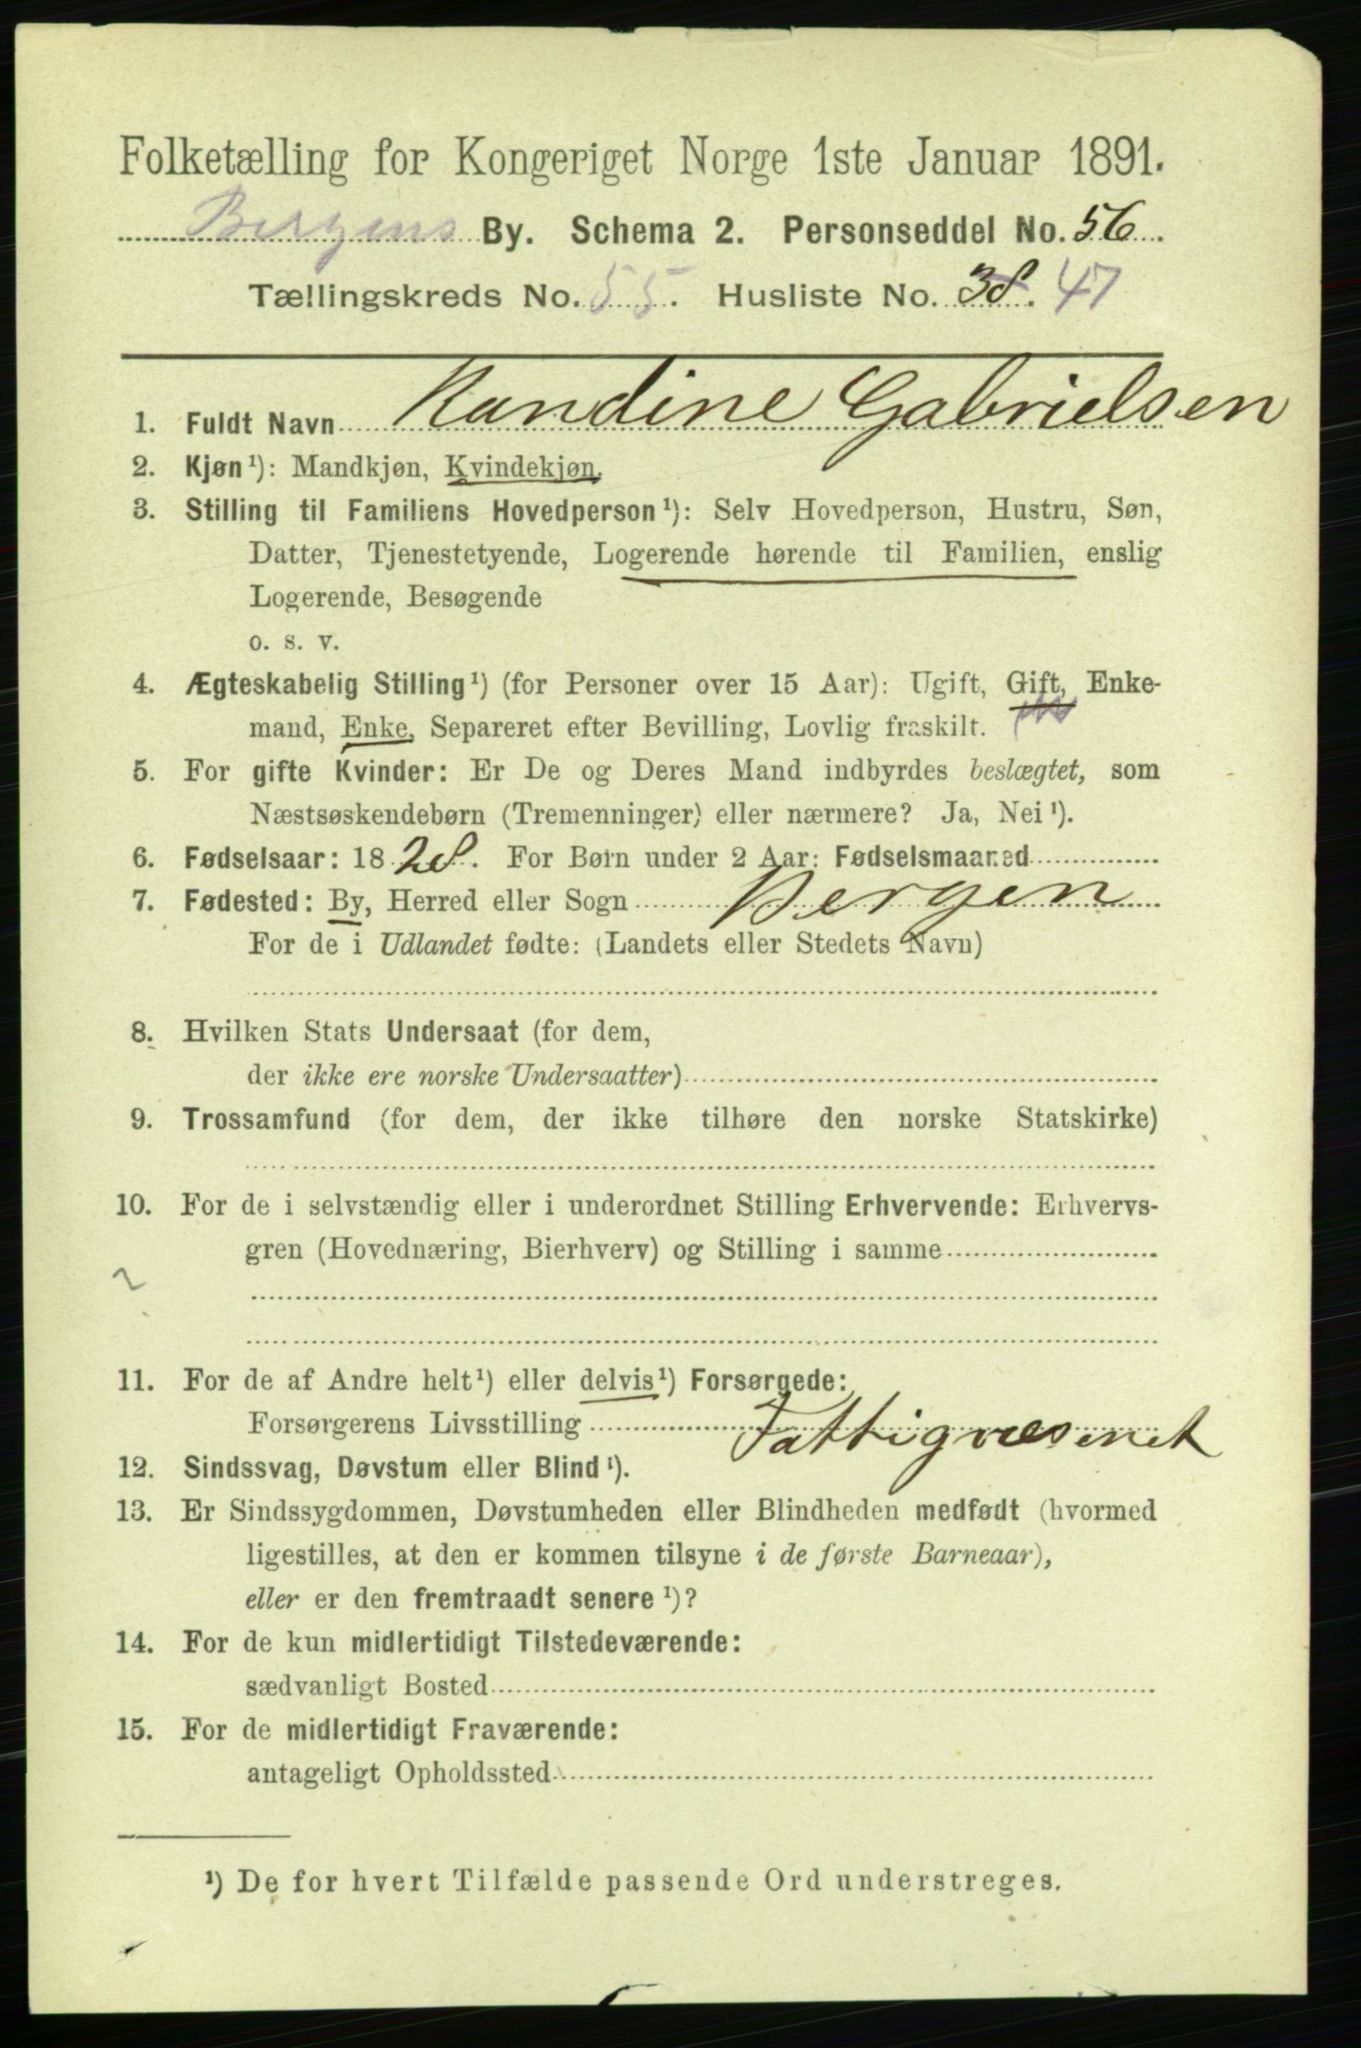 Folketælling for Kongeriget Norge 1ste Januar 1891.
Bergens By. Schema 2. Personseddel No. 56.
Tællingskreds No. 55. Husliste No. 38. 47
1. Fuldt Navn Randine Gabrielsen
2. Kjøn¹): Mandkjøn, Kvindekjøn.
3. Stilling til Familiens Hovedperson¹): Selv Hovedperson, Hustru, Søn,
Datter, Tjenestetyende, Logerende hørende til Familien, enslig
Logerende, Besøgende
o. s. v.
4. Ægteskabelig Stilling¹) (for Personer over 15 Aar): Ugift, Gift, Enke-
mand, Enke, Separeret efter Bevilling, Lovlig fraskilt.
5. For gifte Kvinder: Er De og Deres Mand indbyrdes beslægtet, som
Næstsøskendebørn (Tremenninger) eller nærmere? Ja, Nei¹).
6. Fødselsaar: 1828. For Børn under 2 Aar: Fødselsmaaned
7. Fødested: By, Herred eller Sogn Bergen
For de i Udlandet fødte: (Landets eller Stedets Navn)
8. Hvilken Stats Undersaat (for dem,
der ikke ere norske Undersaatter)
9. Trossamfund (for dem, der ikke tilhøre den norske Statskirke)
10. For de i selvstændig eller i underordnet Stilling Erhvervende: Erhvervs-
gren (Hovednæring, Bierhverv) og Stilling i samme
11. For de af Andre helt¹) eller delvis¹) Forsørgede:
Forsørgerens Livsstilling Fattigvæsenet
12. Sindssvag, Døvstum eller Blind¹).
13. Er Sindssygdommen, Døvstumheden eller Blindheden medfødt (hvormed
ligestilles, at den er kommen tilsyne i de første Barneaar),
eller er den fremtraadt senere¹)?
14. For de kun midlertidigt Tilstedeværende:
sædvanligt Bosted
15. For de midlertidigt Fraværende:
antageligt Opholdssted
¹) De for hvert Tilfælde passende Ord understreges.